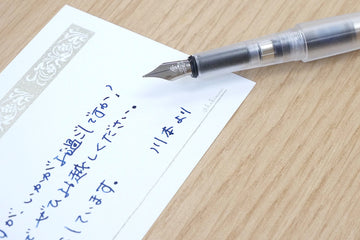 が、いかがお過ごしですか？
ぜひお越しください。
しています。
川本より